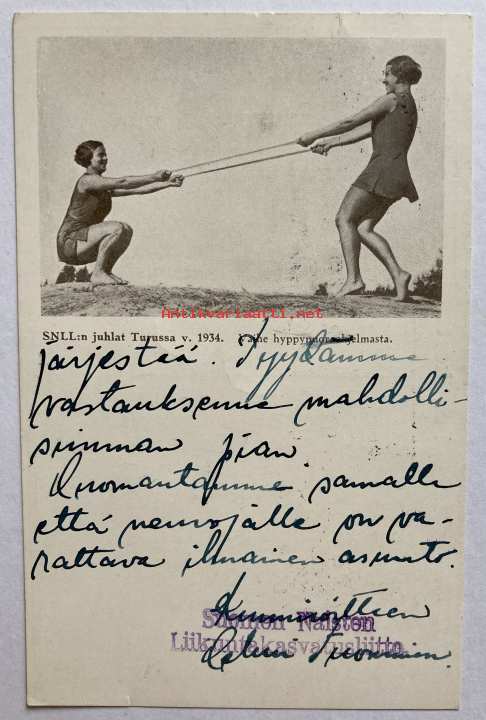 Antikvariaatti.net
SNLL:n juhlat Turussa v. 1934. Vaihe hyppynuoraohjelmasta.
järjestää. Pyydämme
vastauksenne mahdolli-
simman pian
Huomautamme samalla
että neuvojalle on va-
rattava ilmainen asunto.
Kunnioittaen
Suomen Naisten
Liikuntakasvatusliitto